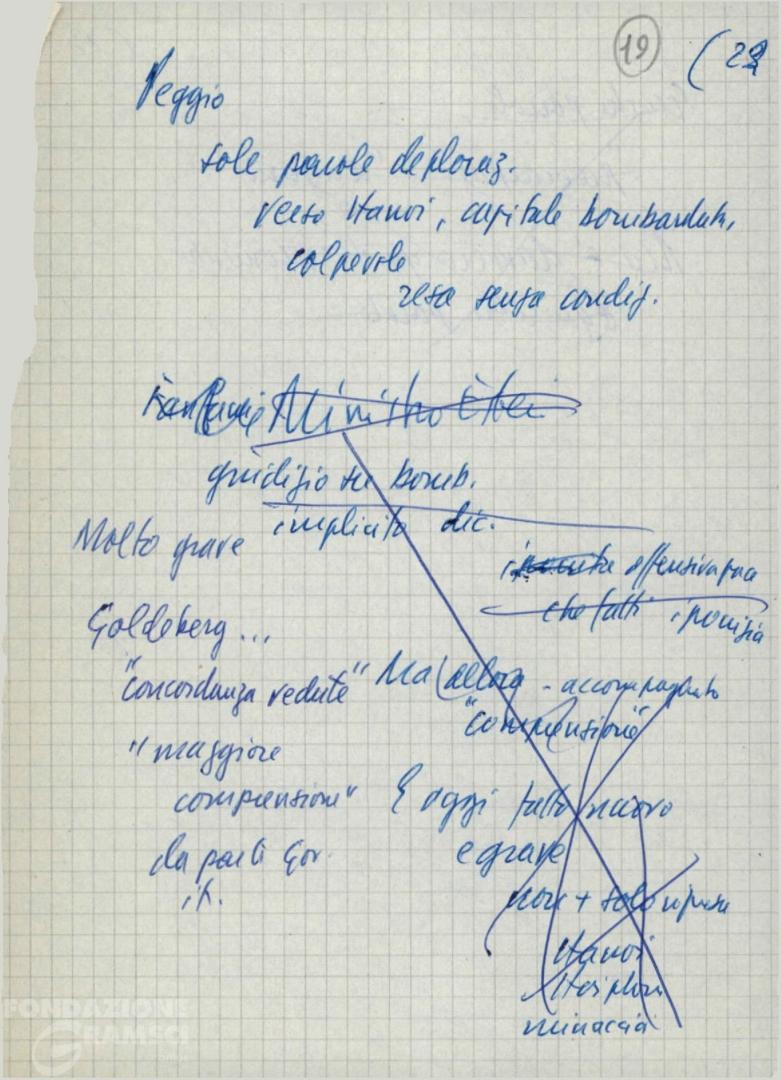 19
(22
Peggio
sole parole deploraz.
verso Hanoi, capitale bombardata,
colpevole
resa senza condiz.
Ministro Esteri
giudizio su bomb.
implicito dic.
Molto grave
offensiva pace
che fatti
Goldeberg...
"concordanza vedute"
Ma allora - accompagnato
"comprensione"
"maggiore
comprensione"
E oggi fatto nuovo
e grave
da parte Gov.
it.
non + solo ripresa
Hanoi
Haiphon
minaccia
FONDAZIONE
GRAMSCI